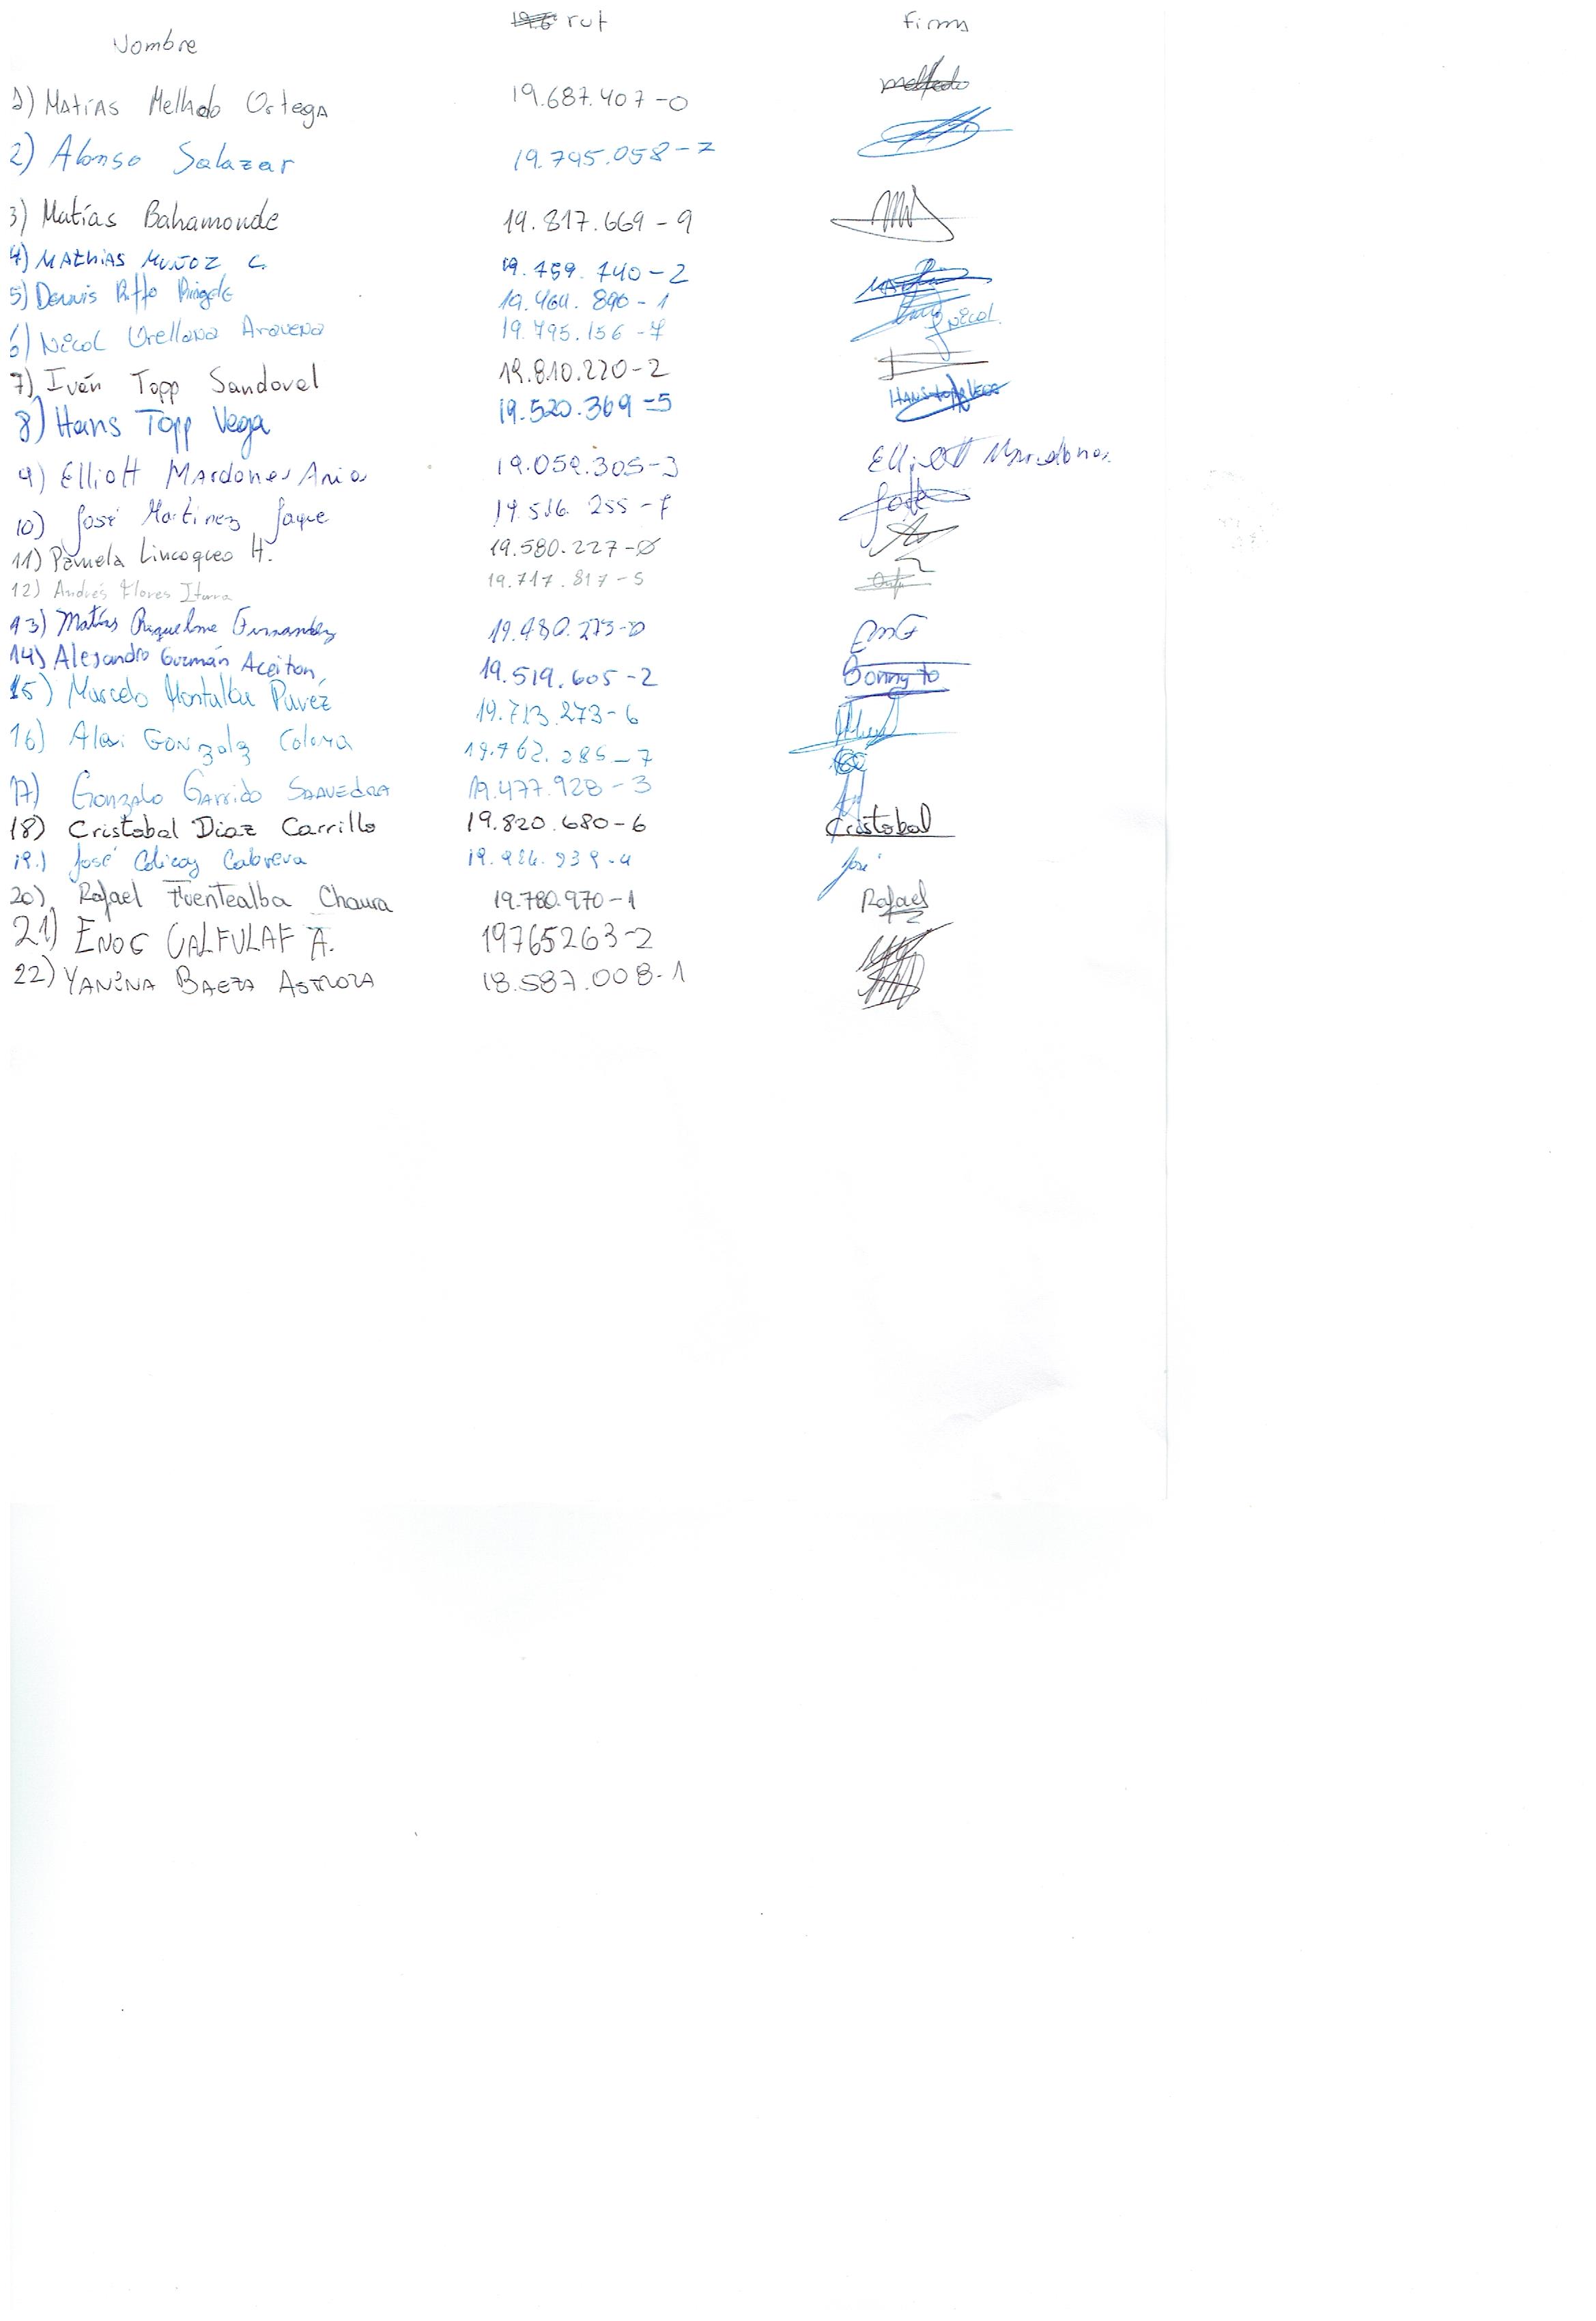 Nombre rut firma
1) Matías Mellado Ortega 19.687.407-0 mellado
2) Alonso Salazar 19.795.058-7
3) Matías Bahamonde 19.817.669-9
4) Mathias Muñoz C. 19.759.740-2
5) Dennis Riffo 19.464.890-1
6) Nicol Orellana Aravena 19.795.156-7 Nicol
7) Iván Topp Sandoval 19.810.220-2
8) Hans Topp Vega 19.520.369-5 Hans topp Vega
9) Elliott Mardones Aria 19.059.305-3 Elliott Mardones
10) José Martinez Jaque 19.516.255-7 José
11) Pamela Lincoqueo H. 19.580.227-0
12) Andrés Flores Iturra 19.717.817-5
13) Matías Riquelme Fernandez 19.480.273-0
14) Alejandro Guzmán Aceiton 19.519.605-2 Bonnyto
15) Marcelo Montalba Pavez 19.713.273-6
16) Alexi Gonzalz Coloma 19.762.285-7
17) Gonzalo Garrido Saavedra 19.477.928-3
18) Cristobal Diaz Carrillo 19.820.680-6 Cristobal
19.) José Colicoy Cabrera José
20) Rafael Fuentealba Chaura 19.780.970-1 Rafael
21) ENOC CALFULAF A. 19765263-2
22) YANINA BAEZA ASTROZA 18.587.008-1